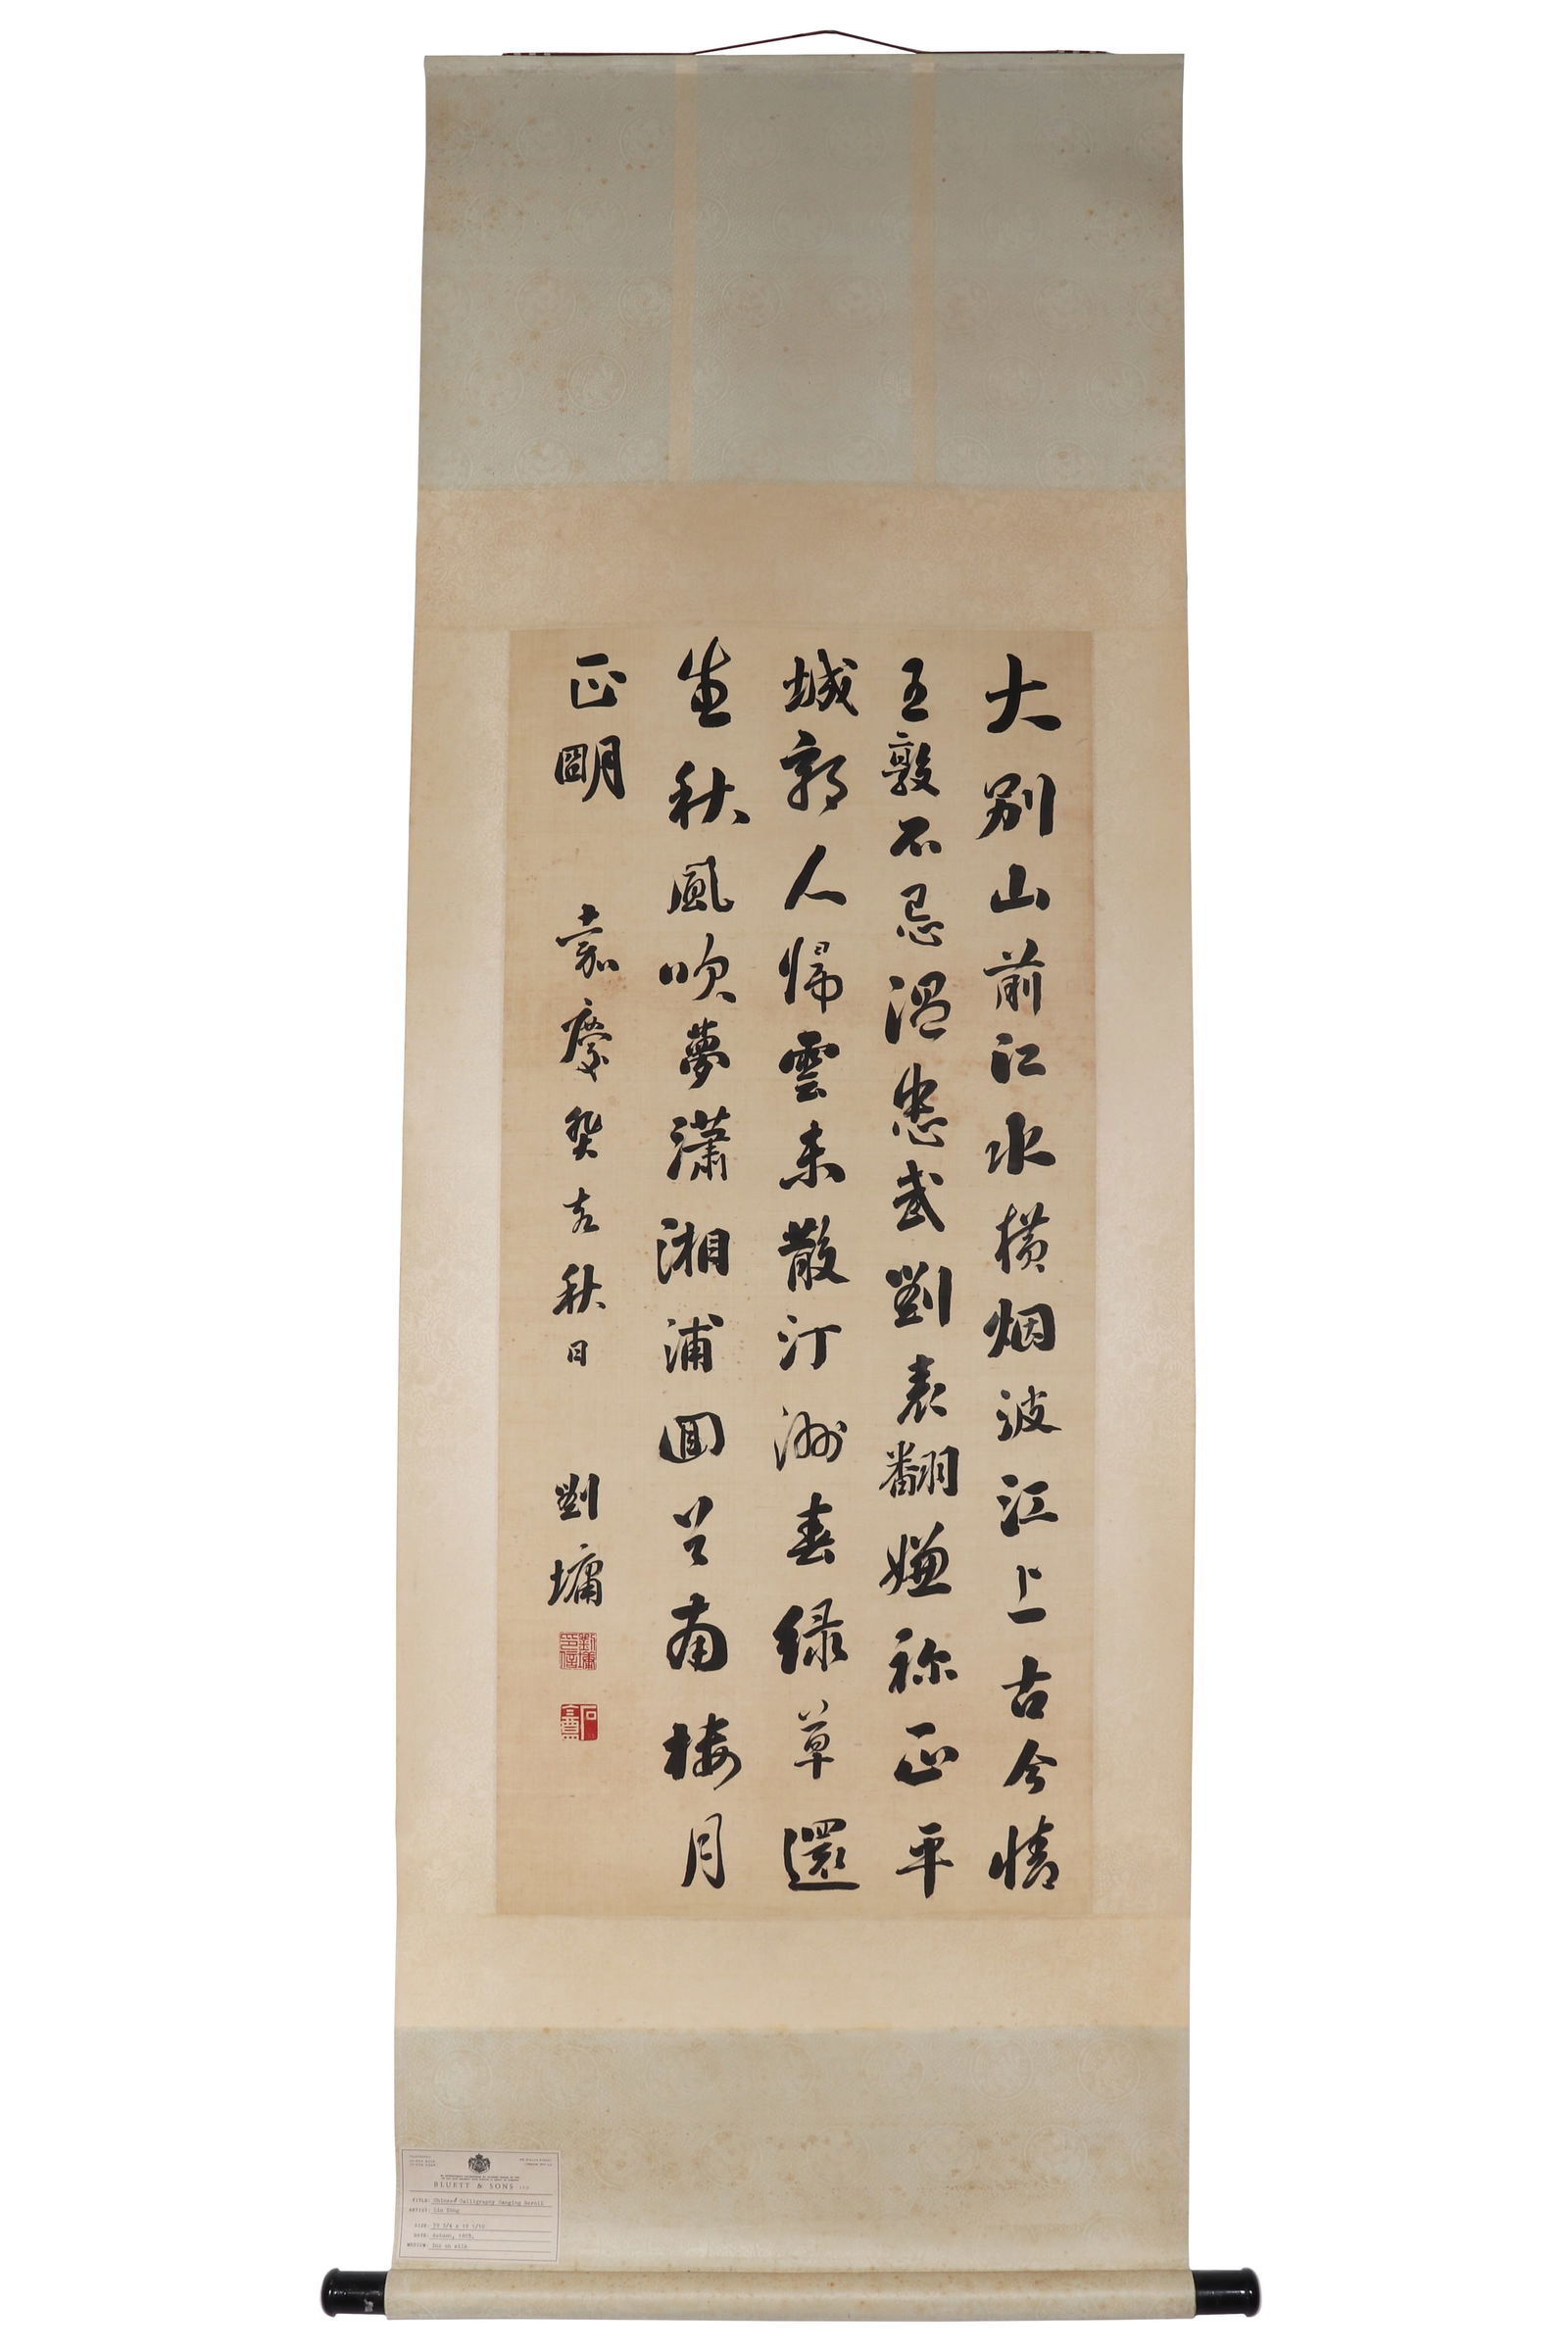 大别山前江水横烟波江上古今情
王敦不忌温忠武劉表翻嫌祢正平
城郭人帰雲未散汀洲春绿草還
生秋風吹夢瀟湘浦囬首南楼月
正朙 嘉慶癸亥秋日 劉墉
劉墉印信
BLUETT & SONS LTD
TITLE: Chinese Calligraphy Hanging Scroll
ARTIST: Liu Yong
SIZE:
DATE: Autumn, 1803.
MEDIUM: Ink on silk